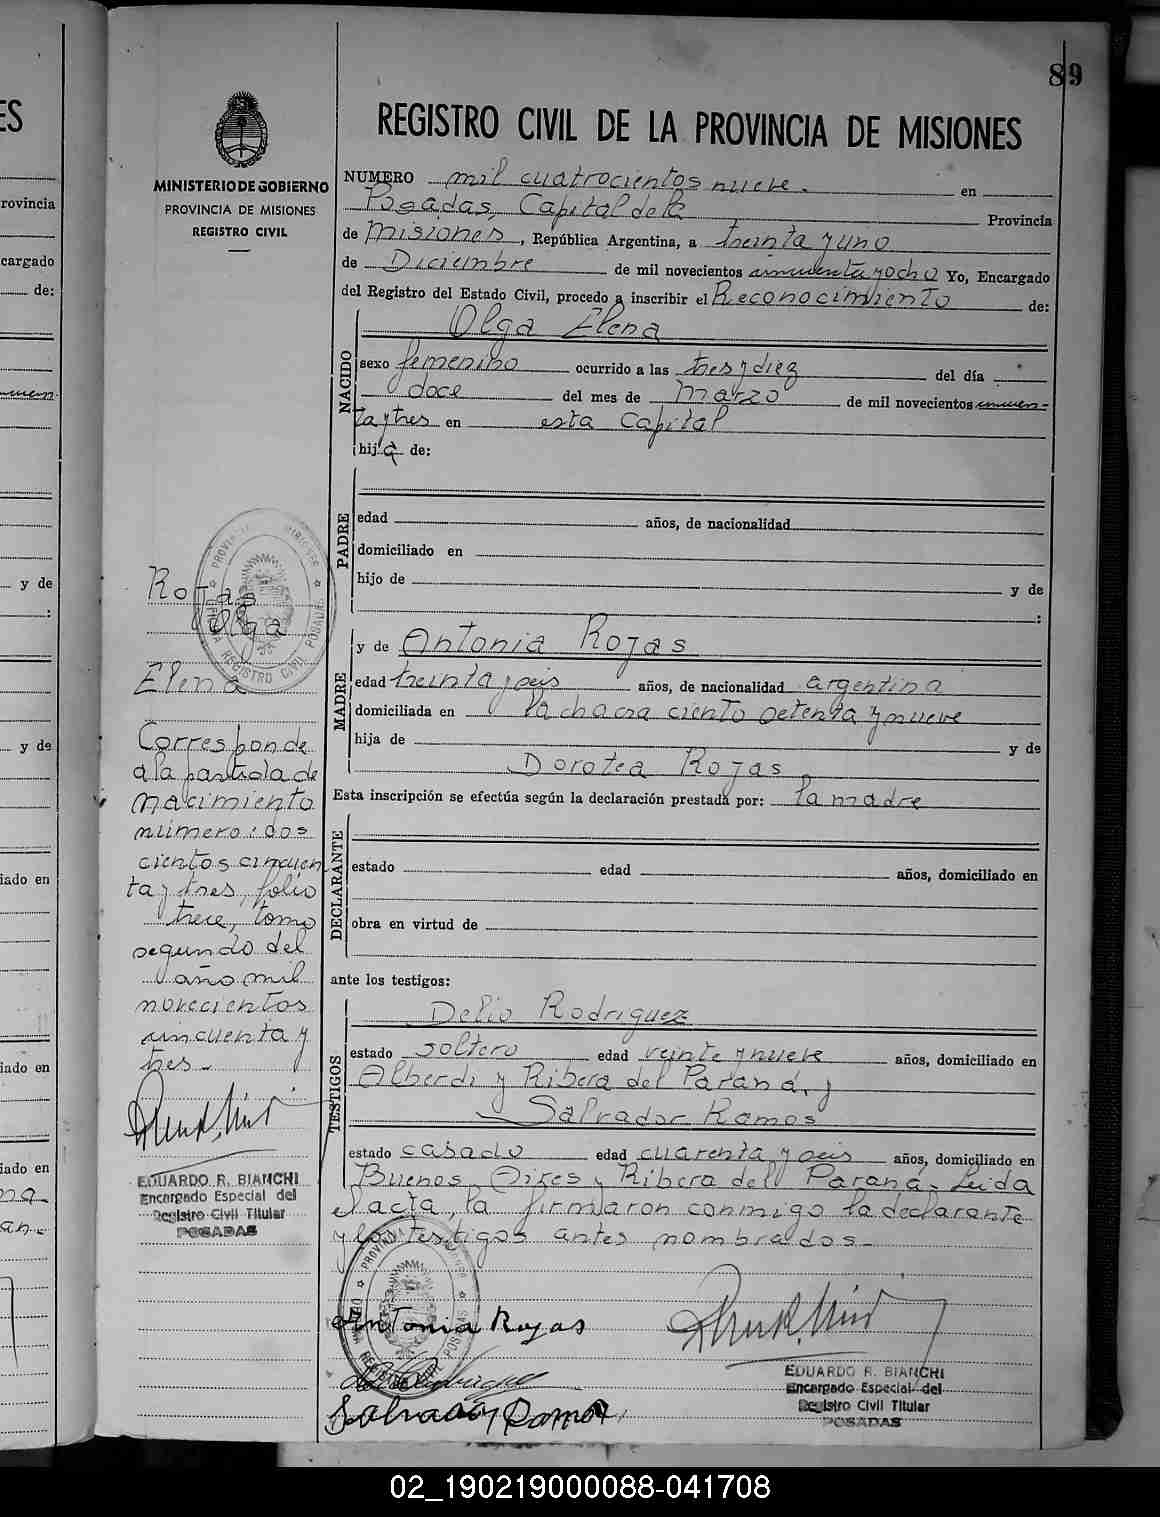 89
REGISTRO CIVIL DE LA PROVINCIA DE MISIONES
MINISTERIO DE GOBIERNO
PROVINCIA DE MISIONES
REGISTRO CIVIL
NUMERO mil cuatrocientos nueve. en
Posadas, Capital de la Provincia
de Misiones, República Argentina, a treinta y uno
de Diciembre de mil novecientos cincuenta y ocho Yo, Encargado
del Registro del Estado Civil, procedo a inscribir el Reconocimiento de:
NACIDO
Olga Elena
sexo femenino ocurrido a las tres y diez del día
doce del mes de Marzo de mil novecientos cincuen-
ta y tres en esta Capital
hija de:
PADRE
edad años, de nacionalidad
domiciliado en
hijo de y de
:
MADRE
y de Antonia Rojas
edad treinta y seis años, de nacionalidad argentina
domiciliada en la chacra ciento setenta y nueve
hija de y de
Dorotea Rojas
Esta inscripción se efectúa según la declaración prestada por: la madre
DECLARANTE
estado edad años, domiciliado en
obra en virtud de
ante los testigos:
TESTIGOS
Delio Rodriguez
estado soltero edad veinte y nueve años, domiciliado en
Alberdi y Ribera del Paraná, y
Salvador Ramos
estado casado edad cuarenta y seis años, domiciliado en
Buenos Aires y Ribera del Paraná. Leida
el acta, la firmaron conmigo la declarante
y los testigos antes nombrados.-
Antonia Rojas
Salvador Ramos
EDUARDO R. BIANCHI
Encargado Especial del
Registro Civil Titular
POSADAS
Rojas
Olga
Elena
Corresponde
a la partida de
nacimiento
número: dos
cientos cincuen
ta y tres, folio
trece, tomo
segundo del
año mil
novecientos
cincuenta y
tres.-
EDUARDO R. BIANCHI
Encargado Especial del
Registro Civil Titular
POSADAS
ES
rovincia
cargado
de:
y de
:
y de
iado en
iado en
iado en
02_190219000088-041708